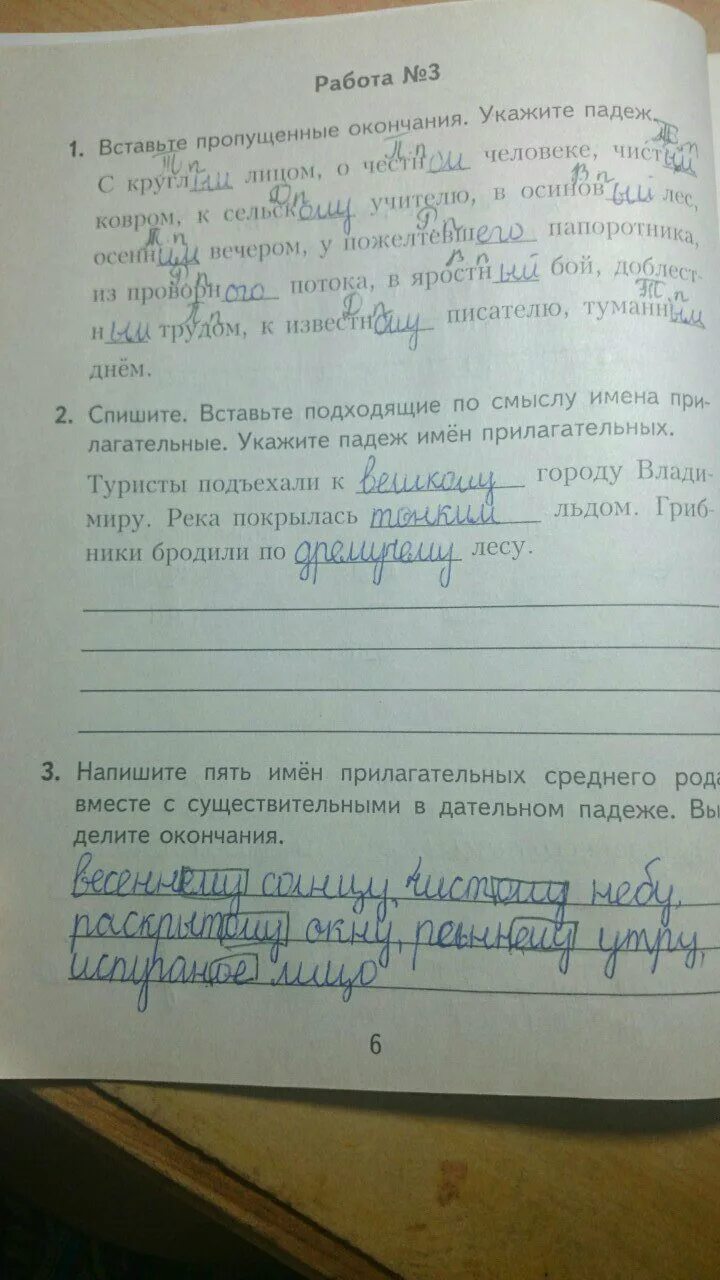 Работа №3
1. Вставьте пропущенные окончания. Укажите падеж.
Т п П п Тв п
С круглым лицом, о честном человеке, чистый
Д п В п
ковром, к сельскому учителю, в осиновый лес,
Т п Р п
осенним вечером, у пожелтевшего папоротника,
В п
из проворного потока, в яростный бой, доблест-
Д п Т п
ным трудом, к известному писателю, туманным
днём.
2. Спишите. Вставьте подходящие по смыслу имена при-
лагательные. Укажите падеж имён прилагательных.
Туристы подъехали к великому городу Влади-
миру. Река покрылась тонким льдом. Гриб-
ники бродили по дремучему лесу.
3. Напишите пять имён прилагательных среднего рода
вместе с существительными в дательном падеже. Вы
делите окончания.
весеннему солнцу, чистому небу,
раскрытому окну, утру,
лицо
6